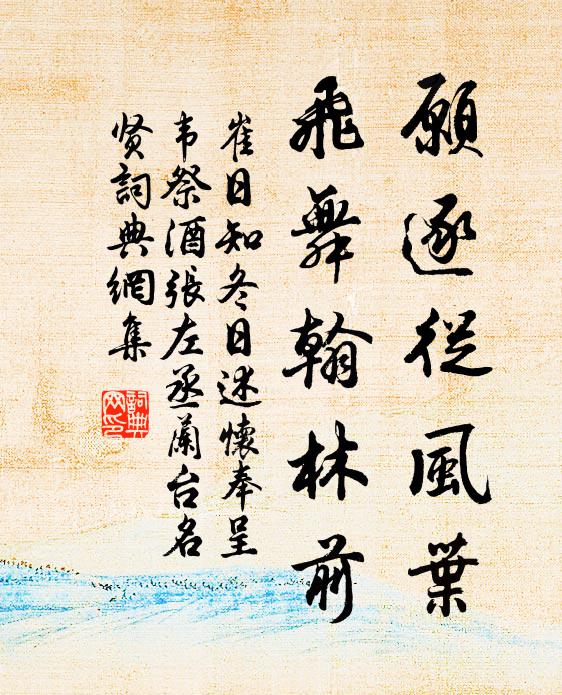 願逐從風葉
飛舞翰林前
崔日知冬日述懷奉呈
韦祭酒張左丞蘭台名
贤詞典網集
詞典
网印